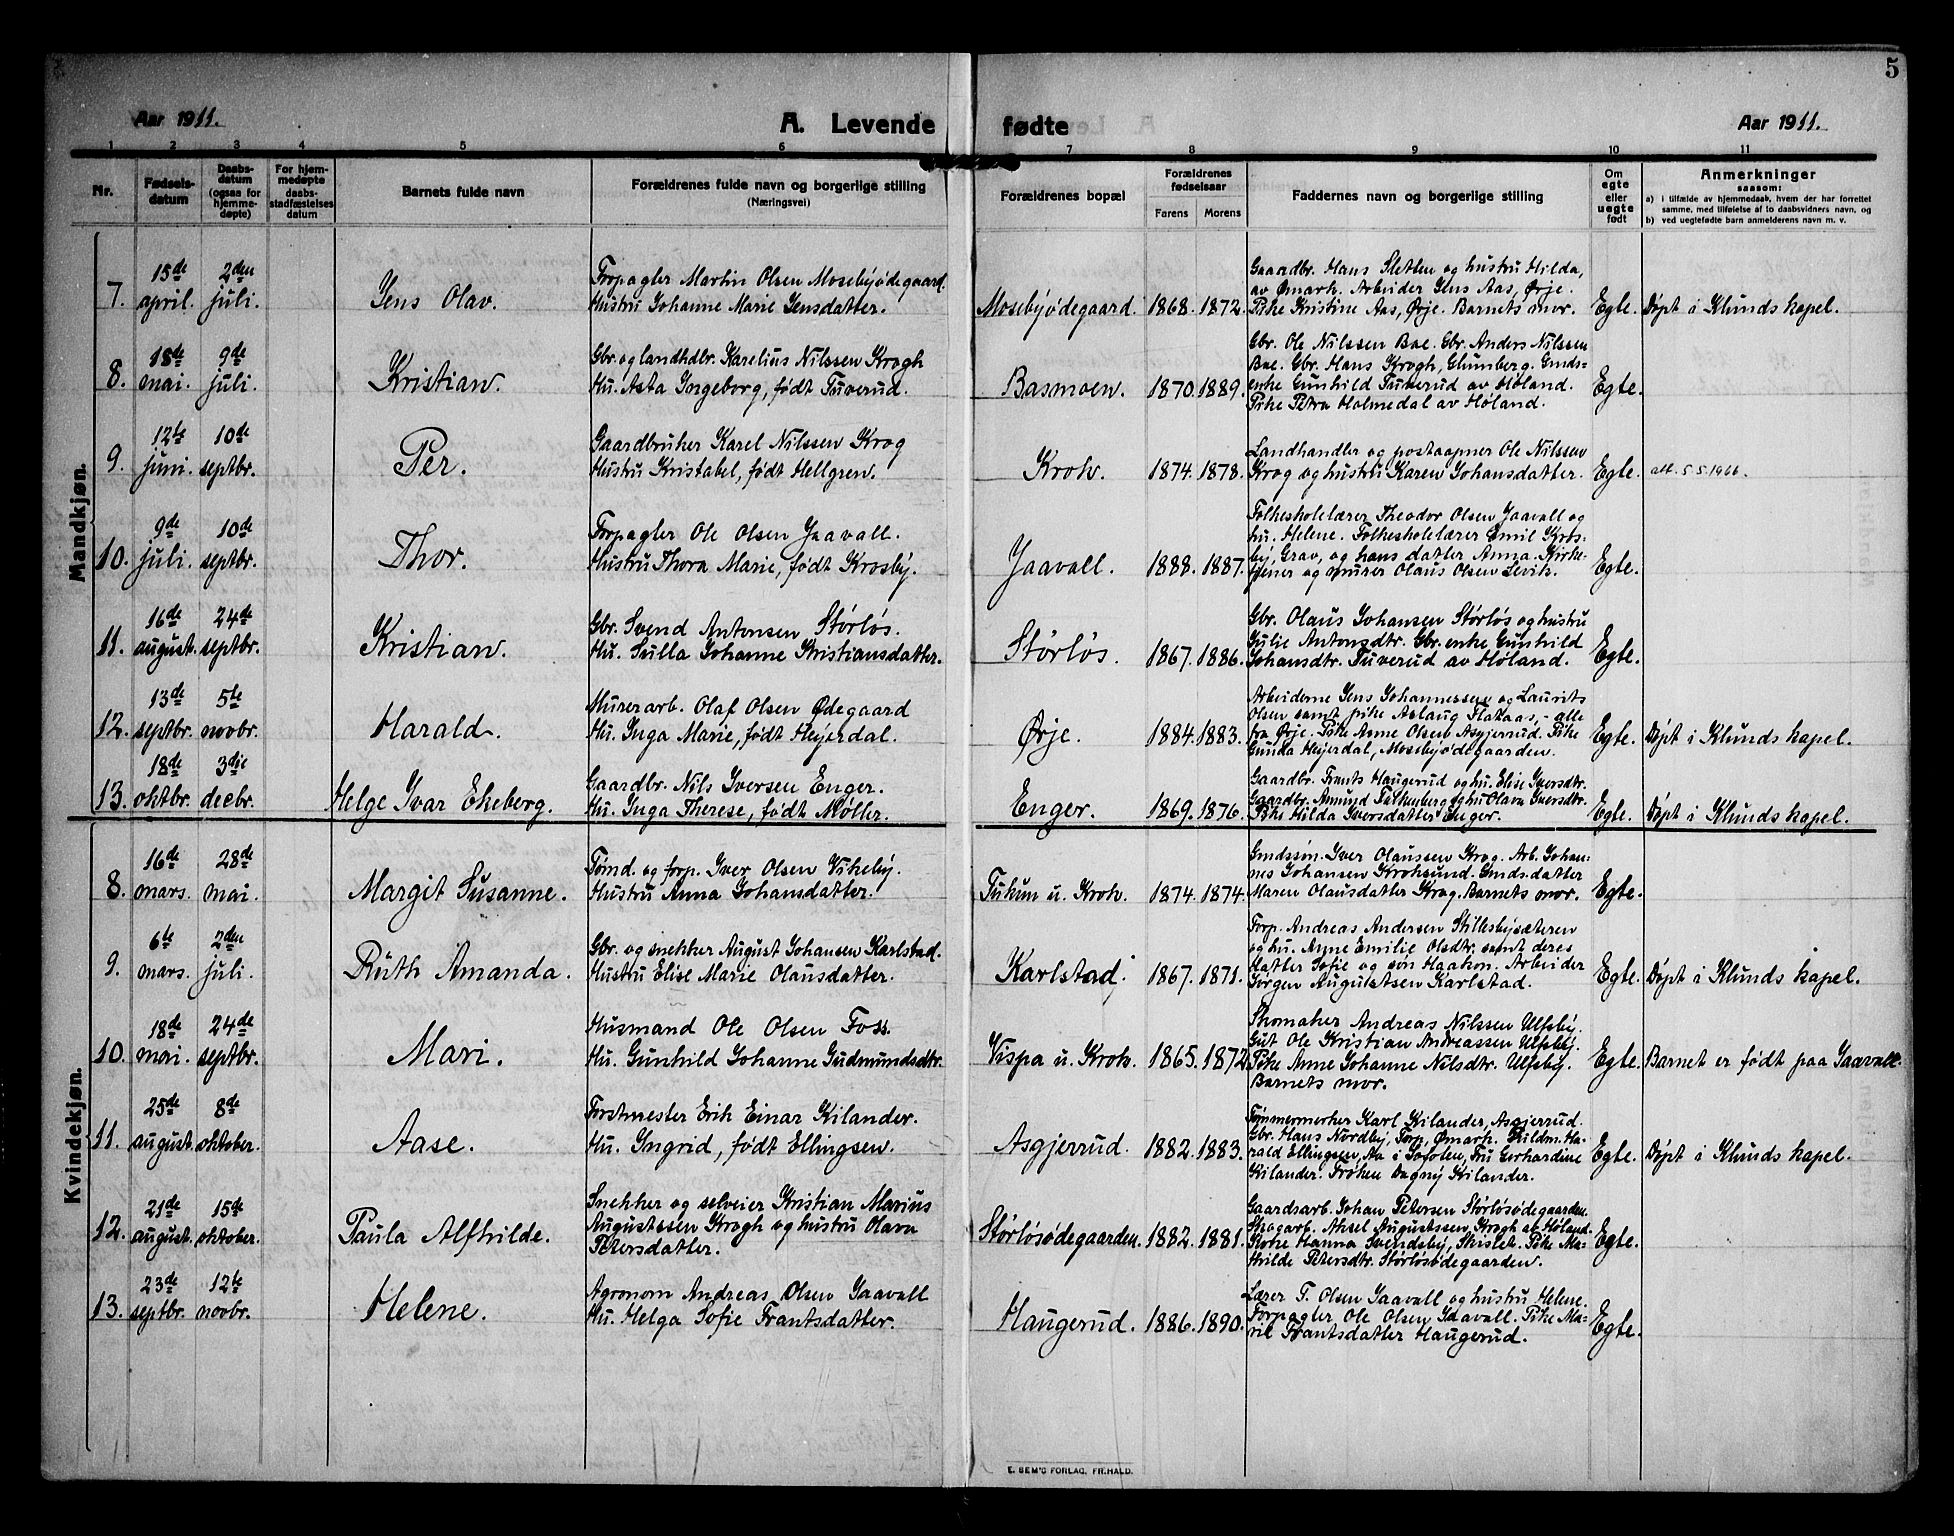 5
Aar 1911.
A. Levende fødte
Aar 1911.
1 2 3 4 5 6 7 8 9 10 11
Nr.
Fødsels-
datum
Daabs-
datum
(ogsaa for
hjemme-
døpte)
For hjem-
medøpte
daabs-
stadfæstelses
datum
Barnets fulde navn
Forældrenes fulde navn og borgerlige stilling
(Næringsvei)
Forældrenes bopæl
Forældrenes
fødselsaar
Farens Morens
Faddernes navn og borgerlige stilling
Om
egte
eller
uegte
født
Anmerkninger
saasom:
a) i tilfælde av hjemmedaab, hvem der har forrettet
samme, med tilføielse af to daabsvidners navn, og
b) ved uegtefødte barn anmelderens navn m. v.
Mandkjøn.
7. 15de april. 2den juli. Jens Olav.
Forpagter Martin Olsen Mosebyødegaard.
Hustru Johanne Marie Jensdatter.
Mosebyødegaard. 1868. 1872.
Gaardbr. Hans Sletten og hustru Hilda,
av Ømark. Arbeider Jens Aas, Ørje.
Pike Kristine Aas, Ørje. Barnets mor.
Egte. Døpt i Klunds kapel.
8. 18de mai. 9de juli. Kristian.
Gbr. og landhdbr. Karelius Nilssen Krogh
Hu. Asta Ingeborg, født Tuverud.
Basmoen. 1870. 1889.
Gbr. Ole Nilssen Bae. Gbr. Anders Nilssen
Bae. Gbr. Hans Krogh, Glumberg. Gmds-
enke Gunhild Tuverud av Høland.
Pike Petra Holmedal av Høland.
Egte.
9. 12te juni. 10de septbr. Per.
Gaardbruker Karel Nilssen Krog
Hustru Kristabel, født Hellgren.
Krok. 1874. 1878.
Landhandler og postaapner Ole Nilssen
Krog og hustru Karen Johansdatter.
Egte. att. 5.5.1966.
10. 9de juli. 10de septbr. Thor.
Forpagter Ole Olsen Jaavall.
Hustru Thora Marie, født Krosby.
Jaavall. 1888. 1887.
Folkeskolelærer Theodor Olsen Jaavall og
hu. Helene. Folkeskolelærer Emil Kros-
by, Grav, og hans datter Anna. Kirke-
tjener og murer Olaus Olsen Levik.
Egte.
11. 16de august. 24de septbr. Kristian.
Gbr. Svend Antonsen Størløs.
Hu. Sulla Johanne Kristiansdatter.
Størløs. 1867. 1886.
Gbr. Olaus Johansen Størløs og hustru
Julie Antonsdtr. Gbr. enke Gunhild
Johansdtr. Tuverud av Høland.
Egte.
12. 13de septbr. 5te novbr. Harald.
Murerarb. Olaf Olsen Ødegaard
Hu. Inga Marie, født Heyerdal.
Ørje. 1884. 1883.
Arbeiderne Jens Johannessen og Laurits
Olsen samt pike Aslaug Flataas, - alle
fra Ørje. Pike Anne Olsen Asgjerrud. Pike
Gunda Heyerdal, Mosebyødegaarden.
Egte. Døpt i Klunds kapel.
13. 18de oktbr. 3die decbr. Helge Ivar Ekeberg.
Gaardbr. Nils Iversen Enger.
Hu. Inga Therese, født Møller.
Enger. 1869. 1876.
Gaardbr. Frants Haugerud og hu. Elise Iversdtr.
Gaardbr. Amund Falkenberg og hu Olava Iversdtr.
Pike Hilda Iversdatter Enger.
Egte. Døpt i Klunds kapel.
Kvindekjøn.
8. 16de mars. 28de mai. Margit Susanne.
Tømd. og forp. Iver Olsen Vikeby.
Hustru Anna Johansdatter.
Tukum u. Krok. 1874. 1874.
Gmdssøn. Iver Olaussen Krog. Arb. Johan-
nes Johansen Kroksund. Gmds.datter
Maren Olausdatter Krog. Barnets mor.
Egte.
9. 6te mars. 2den juli. Rüth Amanda.
Gbr. og snekker August Johansen Karlstad.
Hustru Elise Marie Olausdatter.
Karlstad. 1867. 1871.
Forp. Andreas Andersen Stillesbysæteren
og hu. Anne Emilie Olsdtr. samt deres
datter Sofie og søn Haakon. Arbeider
Jørgen Augustsen Karlstad.
Egte. Døpt i Klunds kapel.
10. 18de mai. 24de septbr. Mari.
Husmand Ole Olsen Foss.
Hu. Gunhild Johanne Gudmundsdtr.
Vispa u. Krok. 1865. 1872
Skomaker Andreas Nilssen Ulfsby.
Gut Ole Kristian Andreassen Ulfsby.
Pike Anne Johanne Nilsdtr. Ulfsby.
Barnets mor.
Egte. Barnet er født paa Jaavall.
11. 25de august. 8de oktober. Aase.
Forstmester Erik Einar Kilander.
Hu. Ingrid, født Ellingsen.
Asgjerrud. 1882. 1883.
Tømmermerker Karl Kilander, Asgjerrud.
Gbr. Hans Nordby, Torp, Ømark. Huldm. Ha-
rald Ellingsen, Aa i Sofoten, Fru Gerhardine
Kilander. Frøken Dagny Kilander.
Egte. Døpt i Klunds kapel.
12. 21de august. 15de oktober. Paula Alfhilde.
Snekker og selveier Kristian Marius
Augustssen Krogh og hustru Olava
Petersdatter.
Størløsødegaarden. 1882. 1881.
Gaardsarb. Johan Petersen Størløsødegaarden.
Skogarb. Aksel Augustssen Krogh ab. Høland.
Kone Hanna Svendsby, Skislet. Pike Ma-
thilde Petersdtr. Størløsødegaarden.
Egte.
13. 23de septbr. 12te novbr. Helene.
Agronom Andreas Olsen Jaavall
Hu. Helga Sofie Frantsdatter.
Haugerud. 1886. 1890.
Lærer T. Olsen Jaavall og hustru Helene.
Forpagter Ole Olsen Jaavall. Pike Ma-
ril Frantsdatter Haugerud.
Egte.
E. SEM'S FORLAG, FR.HALD.